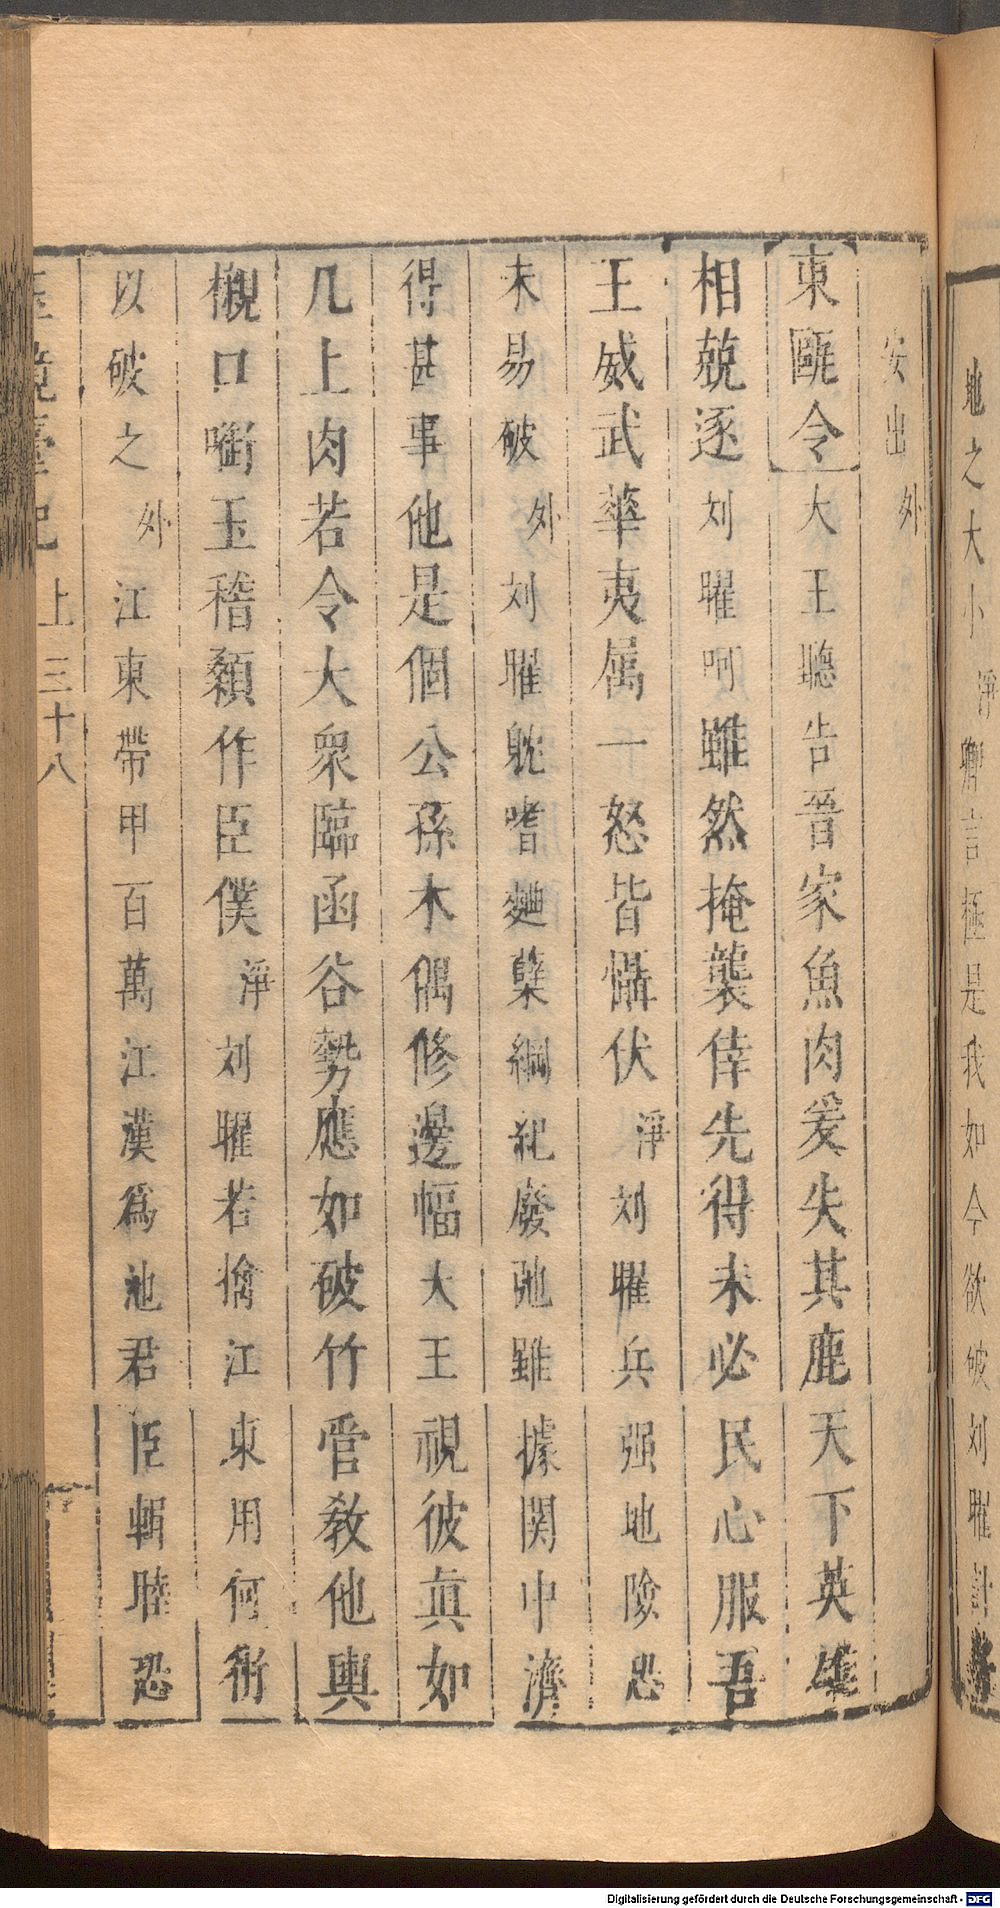 地之大小淨卿言極是我如今欲破刘曜計
安出外
東甌令大王聽告晋家魚肉爰失其鹿天下英雄
相兢逐刘曜呵雖然掩襲倖先得未必民心服吾
王威武華夷属一怒皆懾伏淨刘曜兵强地險恐
未易破外刘曜躭嗜麯蘖綱紀廢弛雖據関中濟
得甚事他是個公孫木偶修邊幅大王視彼真如
几上肉若令大衆臨函谷勢應如破竹管教他輿
櫬口啣玉稽顙作臣僕淨刘曜若擒江東用何術
以破之外江東帶甲百萬江漢爲池君臣輯睦恐
玉鏡臺記 上 三十八
Digitalisierung gefördert durch die Deutsche Forschungsgemeinschaft - DFG